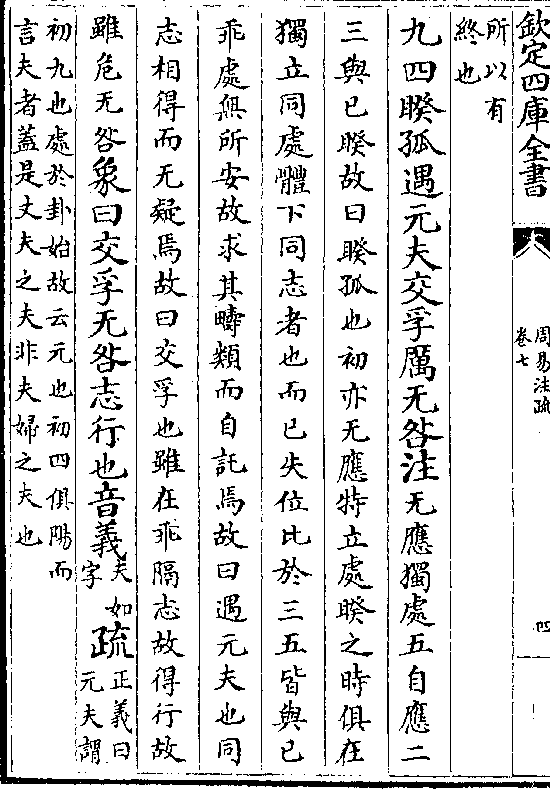 欽定四庫全書
周易注疏
卷七
四
所以有
終也
九四睽孤遇元夫交孚厲无咎注无應獨處五自應二
三與已睽故曰睽孤也初亦无應特立處睽之時俱在
獨立同處體下同志者也而已失位比於三五皆與已
乖處無所安故求其疇類而自託焉故曰遇元夫也同
志相得而无疑焉故曰交孚也雖在乖隔志故得行故
雖危无咎象曰交孚无咎志行也音義夫如
字疏正義曰
元夫謂
初九也處於卦始故云元也初四俱陽而
言夫者蓋是丈夫之夫非夫婦之夫也